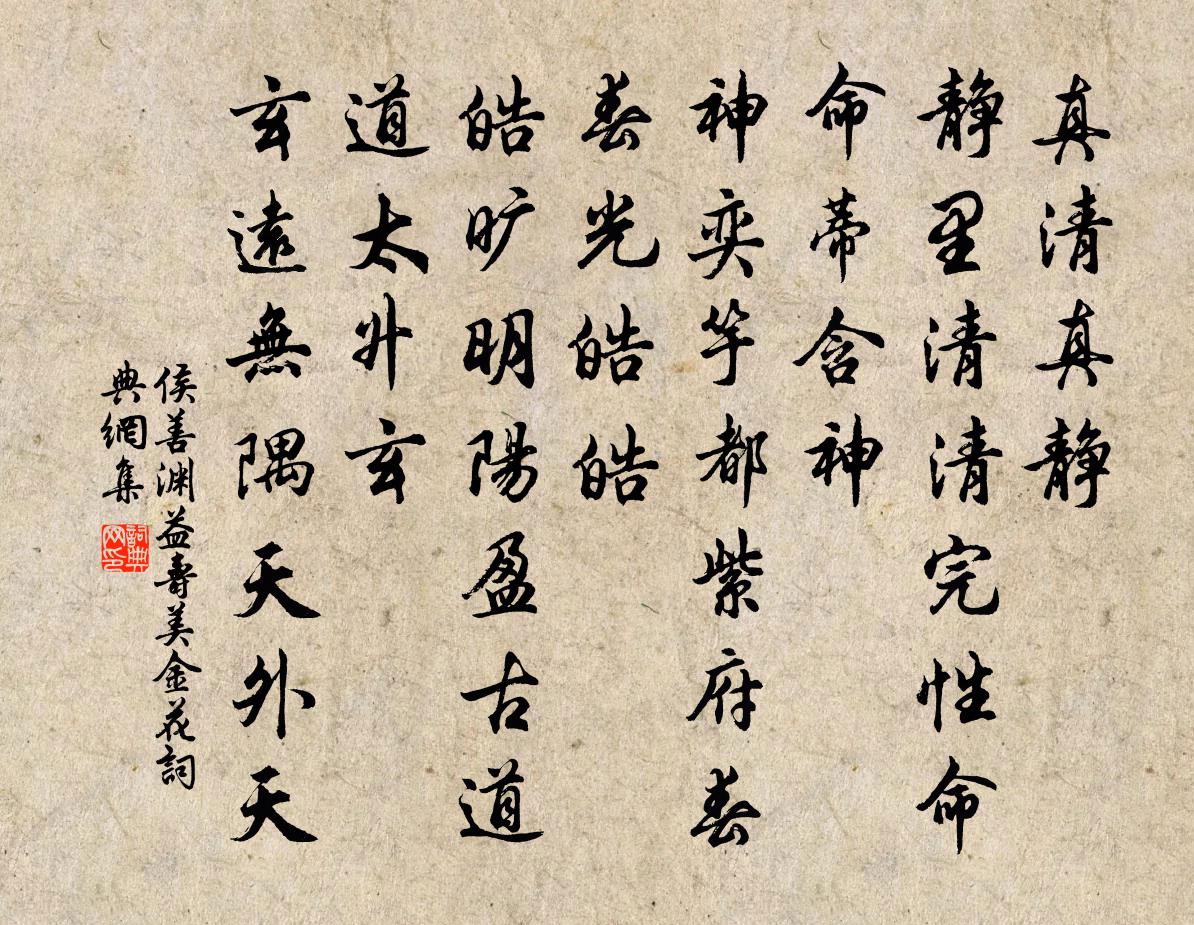 真清真静
静里清清完性命
命蒂含神
神奕竿都紫府春
春光皓皓
皓旷明陽盈古道
道太升玄
玄遠無隅天外天
侯善渊益壽美金花詞
典網集
詞典
网印